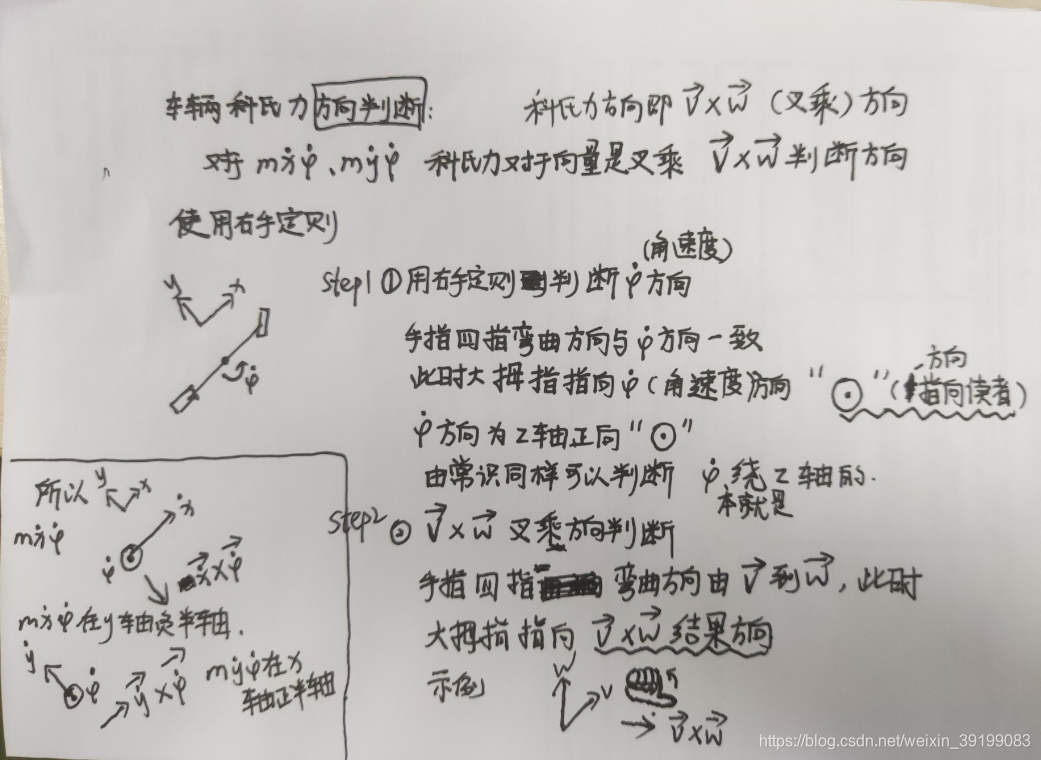 车辆科氏力方向判断: 科氏力方向即 V⃗×W⃗ (叉乘)方向
对于 mẋφ̇、mẏφ̇ 科氏力对于向量是叉乘 V⃗×W⃗ 判断方向
使用右手定则
(角速度)
step1 ① 用右手定则判断 φ̇ 方向
y x
φ̇
手指四指弯曲方向与 φ̇ 方向一致
此时大拇指指向 φ̇ (角速度)方向 "⊙" (方向指向读者)
φ̇ 方向为 z 轴正向 "⊙"
由常识同样可以判断 φ̇ 本就是绕 z 轴的.
step2 ② V⃗×W⃗ 叉乘方向判断
手指四指弯曲方向由 V⃗ 到 W⃗, 此时
大拇指指向 V⃗×W⃗ 结果方向
示例 W V
V⃗×W⃗
所以 y x
mẋφ̇ ẋ
φ̇ ẋ⃗×φ̇⃗
mẋφ̇ 在 y 轴负半轴.
ẏ φ̇ ẏ⃗×φ̇⃗
mẏφ̇ 在 x
轴正半轴
https://blog.csdn.net/weixin_39199083